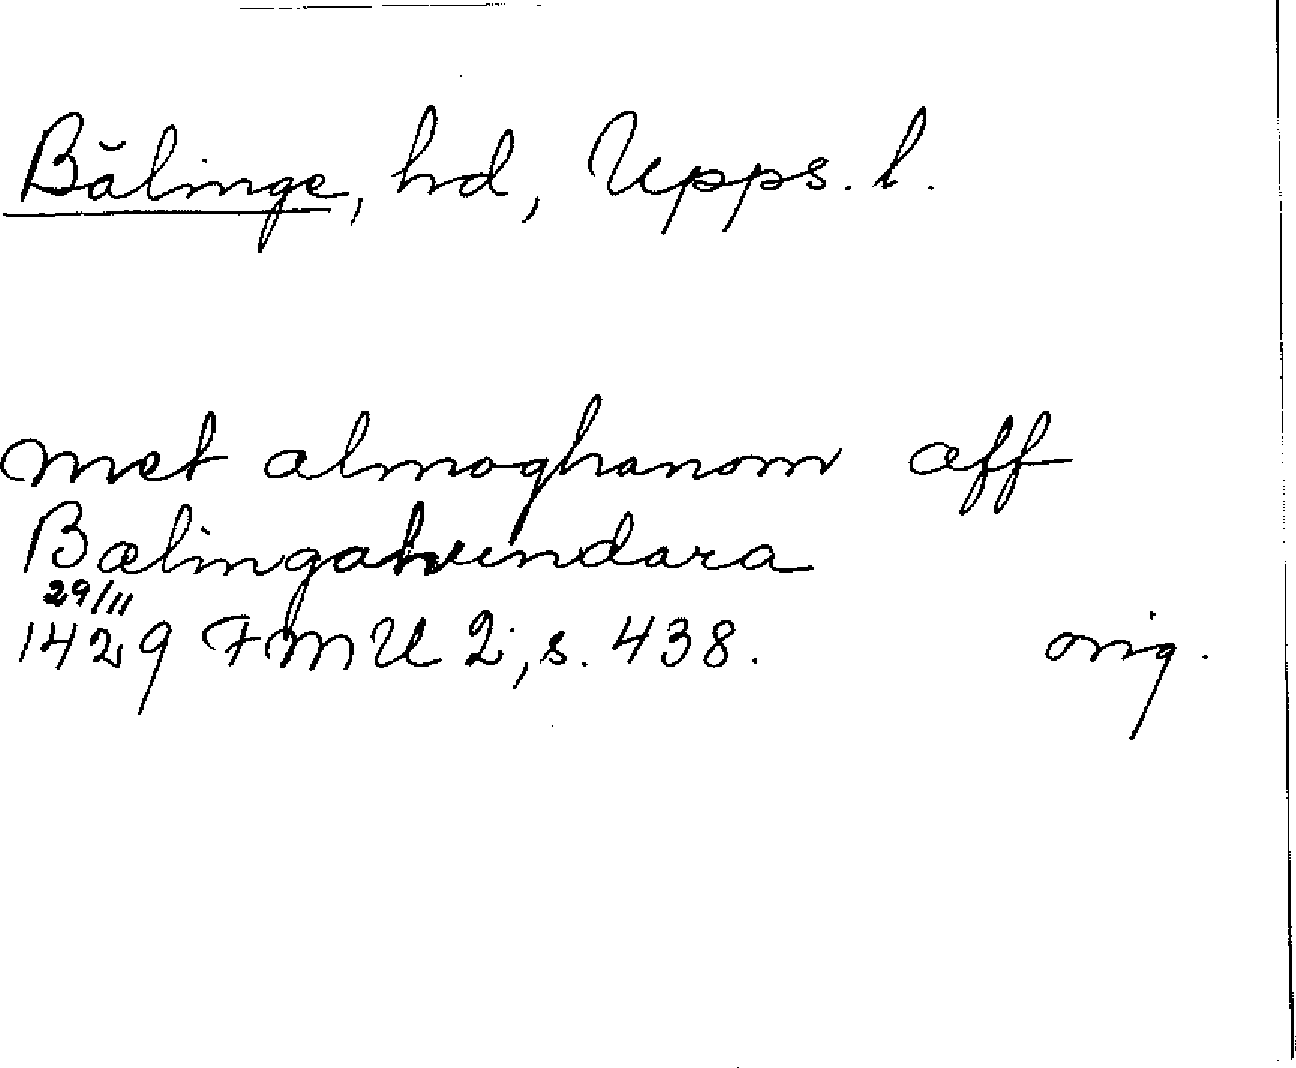 Bälinge, hd, Upps. l.
met almoghanom aff
Bælingahundara
29/11
1429 FMU 2, s. 438. orig.